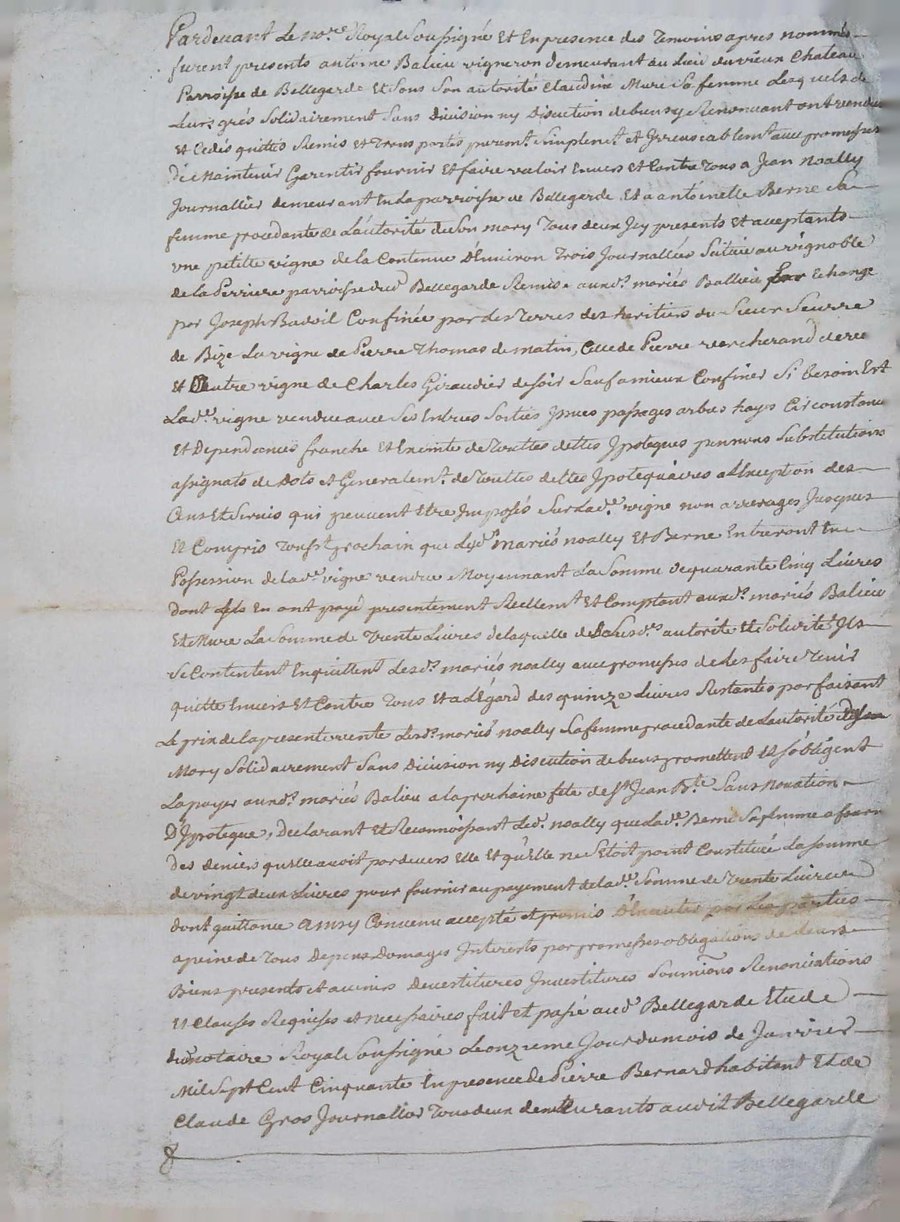 Pardevant Le no.re Royal Soussigné Et En presence des Temoins apres nommés
furent presents antoine Balieu vigneron demeurant au Lieu du vieux Chateau
Parroisse de Bellegarde Et Sous Son autorité Claudine Mure Sa femme Lesquels de
Leurs grés Solidairement Sans Division ny Discution de biens y Renoncant ont vendu
et Cedés quittés Remis et Trans portés purem.t Simplem.t et Irrevocablem.t avec promesses
de Maintenir Garentir fournir Et faire valoir Envers Et Contre Tous a Jean Noally
Journallier demeurant En La parroisse de Bellegarde Et a antoinette Berne Sa
femme procedante de L'autorité de Son mary Tous deux Icy presents Et acceptants
une petitte vigne de la Contenue D'Environ Trois Journallées Scituée au vignoble
de la Perriere parroisse dud. Bellegarde Remise auxd. mariés Ballieu par Echange
par Joseph Badoil Confinée par des Terres des heritiers du Sieur
de Bize La vigne de Pierre Thomas de matin, Celle de Pierre vercherand de
et autre vigne de Charles Giraudier de soir Sauf a mieux Confiner Si besoin Est
Lad.e vigne vendue avec Ses Entrées Sorties Issues passages arbres hayes Circonstances
Et Dependances franche Et Exempte de Touttes dettes Ipoteques pensions Substitutions
assignats de Dots et Generalem.t de Touttes dettes Ipotequaires a l'Exception des
Cens Et Servis qui peuvent Etre Imposés Sur Lad.e vigne non arrerages Jusques
Et Compris prochain que Lesd.s mariés noally Et Berne Entreront En
Possession de lad.e vigne vendue Moyennant La Somme de quarante Cinq Livres
dont En ont payé presentement Reellem.t Et Comptant auxd. mariés Balieu
Et Mure La Somme de Trente Livres de laquelle de Leursd.s autorité Et Solidité Ils
Se Contentent En quittent Lesd. mariés noally avec promesses de Les faire Tenir
quitte Envers Et Contre Tous Et a L'Egard des quinze Livres Restantes parfaisant
Le prix de la presente vente Lesd. mariés noally La femme procedante de L'autorité de Son
Mary Solidairement Sans Division ny Discution de biens promettent Et S'obligent
La payer auxd. mariés Balieu a la prochaine fete de St Jean B.te Sans Novation
D'Ipoteque, declarant Et Reconnoissant Led. noally que Lad.e Berne Sa femme a fourni
des deniers qu'elle avoit pardevers Elle Et qu'Elle ne S'Etoit point Constituée La Somme
de vingt deux Livres pour fournir au payement de lad.e Somme de Trente Livres
dont quittance ainsy Convenu accepté et promis D'Executer par Les parties
a peine de Tous Depens Domages Interests par promesses obligations de Leurs
Biens presents et avenirs Devestitures Investitures Soumissions Renonciations
Et Clauses Requises et necessaires fait et passé aud. Bellegarde Etude
du notaire Royal Soussigné Le onzieme Jour du mois de Janvier
Mil Sept Cent Cinquante En presence de Pierre Bernard habitant Et de
Claude Gros Journallier Tous deux demeurants audit Bellegarde